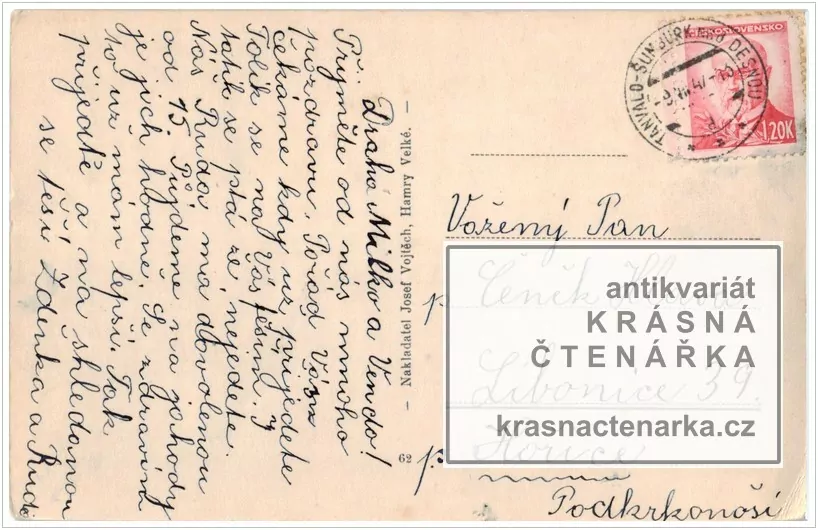 Draha Milko a Vendo!
Přijměte od nás mnoho
pozdravu. Pořád Vás
čekáme kdy už přijedete
Tolik se na Vás těším, y
tatík se ptá že nejedete.
Náš Ruda má dovolenou
od 15. Půjdeme na jahody
je jich hodně. Se zdravím
to už mám lepší. Tak
přijeďte a na shledanou
se těší Zdenka a Ruda
– Nakladatel Josef Vojtěch, Hamry Velké. –
62
TANVALD-ŠUMBURK NAD DESNOU
ČESKOSLOVENSKO
1.20K
Vážený Pan
Čeněk
p. Libonice 39.
p. Hořice
Podkrkonoší
antikvariát
KRÁSNÁ
ČTENÁŘKA
krasnactenarka.cz